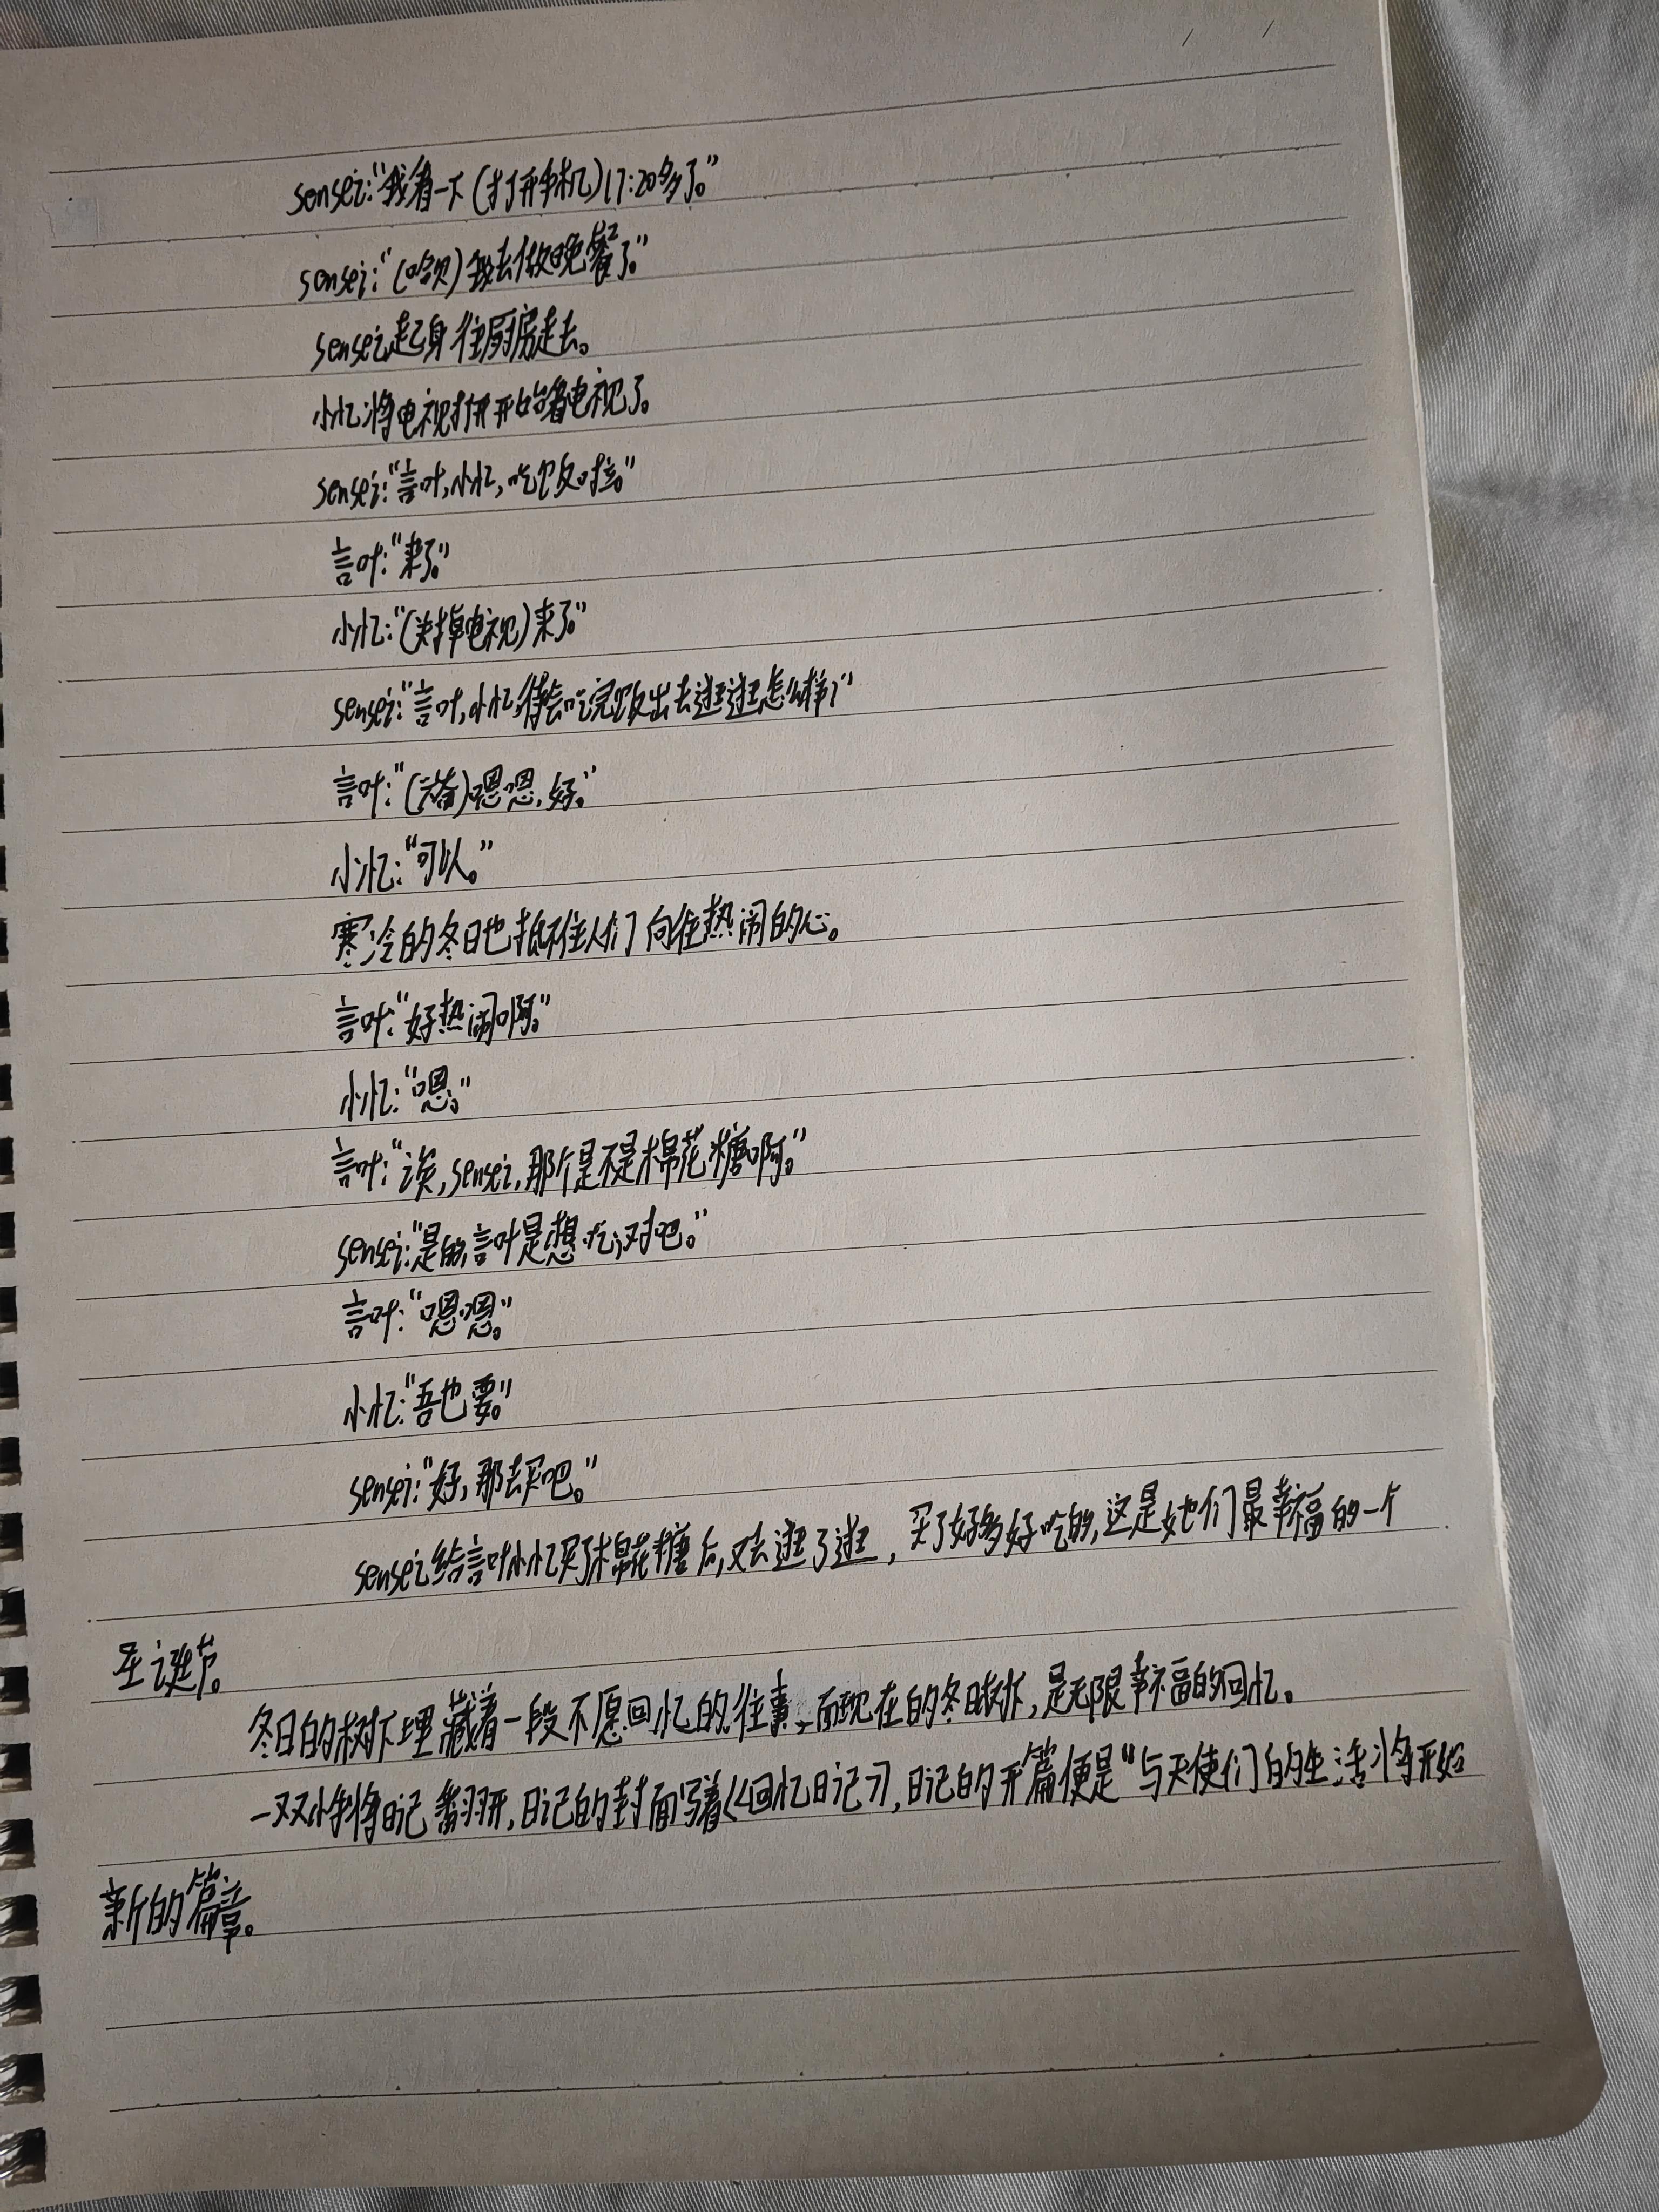 sensei:“我看一下(打开手机)17:20多了。”
sensei:“(哈欠)我去做晚餐了。”
sensei起身往厨房走去。
小忆将电视打开开始看电视了。
sensei:“言叶,小忆,吃饭啦。”
言叶:“来了。”
小忆:“(关掉电视)来了。”
sensei:“言叶,小忆,待会吃完饭出去逛逛怎么样?”
言叶:“()嗯嗯,好。”
小忆:“可以。”
寒冷的冬日也抵不住人们向往热闹的心。
言叶:“好热闹啊。”
小忆:“嗯。”
言叶:“诶,sensei,那个是不是棉花糖啊。”
sensei:“是的,言叶是想吃,对吧。”
言叶:“嗯嗯。”
小忆:“吾也要。”
sensei:“好,那去买吧。”
sensei给言叶小忆买了棉花糖后,又去逛了逛,买了好多好吃的,这是她们最幸福的一个
圣诞节。
冬日的树下埋藏着一段不愿回忆的往事,而现在的冬日树下,是无限幸福的回忆。
一双小手将日记翻开,日记的封面写着《回忆日记》,日记的开篇便是“与天使们的生活将开始
新的篇章。